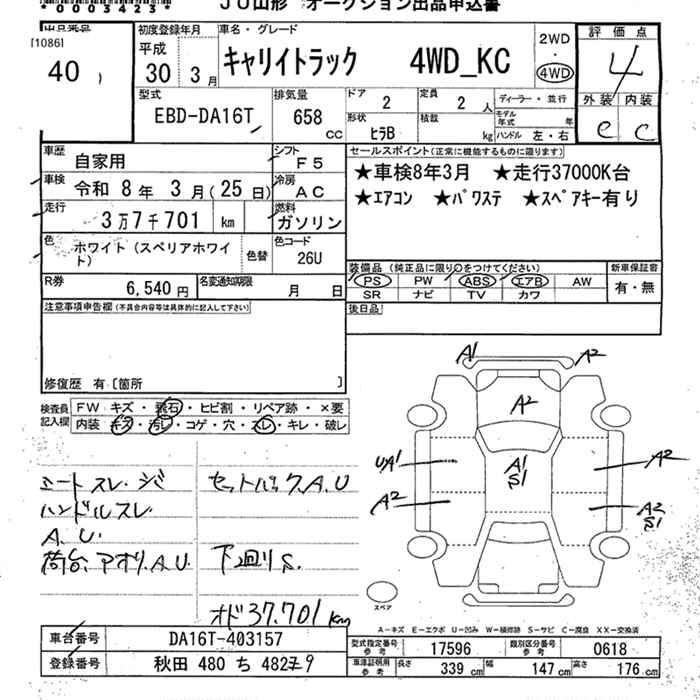 * 0 0 0 3 4 2 3 *
JU山形 オークション出品申込書
出品番号
[1086]
40
初度登録年月
平成
30年 3月
車名・グレード
キャリイトラック 4WD_KC
2WD
・
4WD
評価点
4
外装 内装
e c
型式
EBD-DA16T
排気量
658
CC
ドア
2
形状
ヒラB
定員
2 人
積載
kg
ディーラー・並行
モデル年式 年
ハンドル 左・右
車歴
自家用
シフト
F5
車検
令和 8年 3月(25日)
冷房
AC
走行
3万7千701 km
燃料
ガソリン
色
ホワイト(スペリアホワイト)
色替
色コード
26U
R券
6,540円
名変通知期限
月 日
セールスポイント(正常に機能するものに限ります)
★車検8年3月 ★走行37000K台
★エアコン ★パワステ ★スペアキー有り
装備品(純正品に限り○をつけてください)
PS PW ABS エアB AW
SR ナビ TV カワ
新車保証書
有・無
後日品
注意事項申告欄(不具合内容等は具体的に記入して下さい)
修復歴 有[箇所 ]
検査員記入欄
FW キズ・飛石・ヒビ割・リペア跡・×要
内装 キズ・汚レ・コゲ・穴・スレ・キレ・破レ
シートスレ.シミ
ハンドルスレ
A.U.
荷台.アオリ.A.U
セットバック.A.U
下廻りS.
オド37.701km
A1
A2
A2
UA1
A1
S1
A2
A2
A2
S1
スペア
A-キズ E-エクボ U-凹み W-補修跡 S-サビ C-腐食 XX-交換済
車台番号
DA16T-403157
登録番号
秋田 480 ち 4829
型式指定番号
参考
17596
類別区分番号
参考
0618
車庫証明用
参考
長さ 339 cm
幅 147 cm
高さ 176 cm